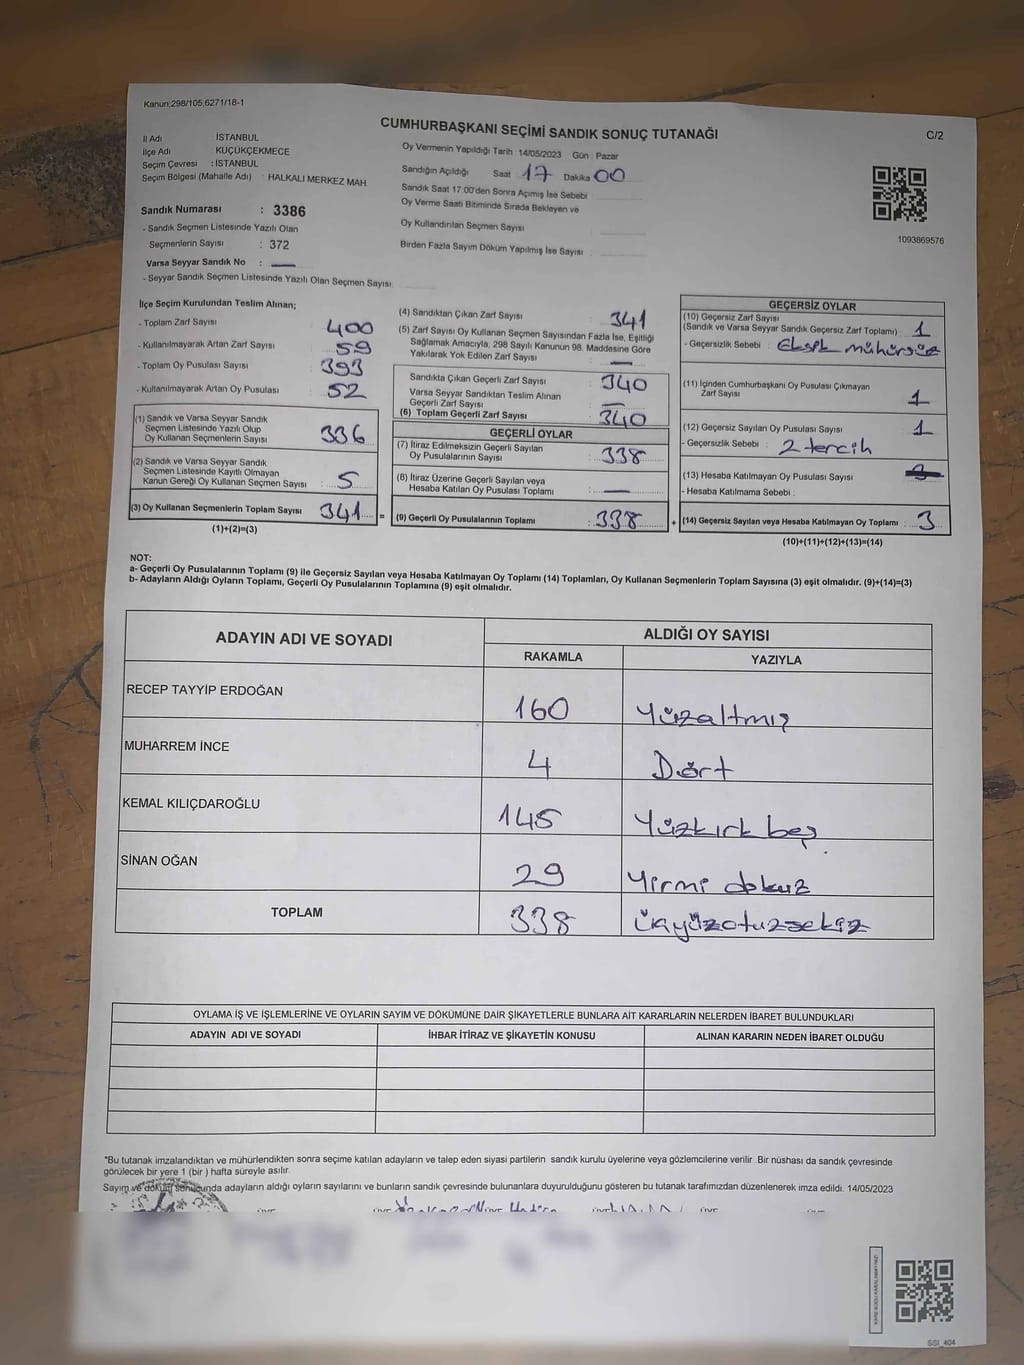 Kanun,298/105,6271/18-1
CUMHURBAŞKANI SEÇİMİ SANDIK SONUÇ TUTANAĞI
C/2
İl Adı İSTANBUL
İlçe Adı KÜÇÜKÇEKMECE
Seçim Çevresi : İSTANBUL
Seçim Bölgesi (Mahalle Adı) : HALKALI MERKEZ MAH.
Oy Vermenin Yapıldığı Tarih : 14/05/2023 Gün : Pazar
Sandığın Açıldığı Saat 17 Dakika 00
Sandık Saat 17:00'den Sonra Açımış İse Sebebi
Oy Verme Saati Bitiminde Sırada Bekleyen ve
Oy Kullandırılan Seçmen Sayısı
Birden Fazla Sayım Döküm Yapılmış İse Sayısı :
1093869576
Sandık Numarası : 3386
- Sandık Seçmen Listesinde Yazılı Olan
Seçmenlerin Sayısı : 372
Varsa Seyyar Sandık No : —
- Seyyar Sandık Seçmen Listesinde Yazılı Olan Seçmen Sayısı :
İlçe Seçim Kurulundan Teslim Alınan;
- Toplam Zarf Sayısı 400
- Kullanılmayarak Artan Zarf Sayısı 59
- Toplam Oy Pusulası Sayısı 393
- Kullanılmayarak Artan Oy Pusulası 52
(1) Sandık ve Varsa Seyyar Sandık
Seçmen Listesinde Yazılı Olup
Oy Kullanan Seçmenlerin Sayısı 336
(2) Sandık ve Varsa Seyyar Sandık
Seçmen Listesinde Kayıtlı Olmayan
Kanun Gereği Oy Kullanan Seçmen Sayısı : 5
(3) Oy Kullanan Seçmenlerin Toplam Sayısı : 341 =
(1)+(2)=(3)
(4) Sandıktan Çıkan Zarf Sayısı : 341
(5) Zarf Sayısı Oy Kullanan Seçmen Sayısından Fazla İse, Eşitliği
Sağlamak Amacıyla, 298 Sayılı Kanunun 98. Maddesine Göre
Yakılarak Yok Edilen Zarf Sayısı : —
Sandıkta Çıkan Geçerli Zarf Sayısı : 340
Varsa Seyyar Sandıktan Teslim Alınan
Geçerli Zarf Sayısı : —
(6) Toplam Geçerli Zarf Sayısı : 340
GEÇERLİ OYLAR
(7) İtiraz Edilmeksizin Geçerli Sayılan
Oy Pusulalarının Sayısı : 338
(8) İtiraz Üzerine Geçerli Sayılan veya
Hesaba Katılan Oy Pusulası Toplamı : —
(9) Geçerli Oy Pusulalarının Toplamı : 338 +
GEÇERSİZ OYLAR
(10) Geçersiz Zarf Sayısı
(Sandık ve Varsa Seyyar Sandık Geçersiz Zarf Toplamı) : 1
- Geçersizlik Sebebi : Eksik mühürsüz
(11) İçinden Cumhurbaşkanı Oy Pusulası Çıkmayan
Zarf Sayısı : 1
(12) Geçersiz Sayılan Oy Pusulası Sayısı : 1
- Geçersizlik Sebebi : 2 tercih
(13) Hesaba Katılmayan Oy Pusulası Sayısı
- Hesaba Katılmama Sebebi :
(14) Geçersiz Sayılan veya Hesaba Katılmayan Oy Toplamı : 3
(10)+(11)+(12)+(13)=(14)
NOT:
a- Geçerli Oy Pusulalarının Toplamı (9) ile Geçersiz Sayılan veya Hesaba Katılmayan Oy Toplamı (14) Toplamları, Oy Kullanan Seçmenlerin Toplam Sayısına (3) eşit olmalıdır. (9)+(14)=(3)
b- Adayların Aldığı Oyların Toplamı, Geçerli Oy Pusulalarının Toplamına (9) eşit olmalıdır.
ADAYIN ADI VE SOYADI ALDIĞI OY SAYISI
RAKAMLA YAZIYLA
RECEP TAYYİP ERDOĞAN 160 Yüzaltmış
MUHARREM İNCE 4 Dört
KEMAL KILIÇDAROĞLU 145 Yüzkırk beş
SİNAN OĞAN 29 Yirmi dokuz
TOPLAM 338 üçyüzotuzsekiz
OYLAMA İŞ VE İŞLEMLERİNE VE OYLARIN SAYIM VE DÖKÜMÜNE DAİR ŞİKAYETLERLE BUNLARA AİT KARARLARIN NELERDEN İBARET BULUNDUKLARI
ADAYIN ADI VE SOYADI İHBAR İTİRAZ VE ŞİKAYETİN KONUSU ALINAN KARARIN NEDEN İBARET OLDUĞU
*Bu tutanak imzalandıktan ve mühürlendikten sonra seçime katılan adayların ve talep eden siyasi partilerin sandık kurulu üyelerine veya gözlemcilerine verilir .Bir nüshası da sandık çevresinde
görülecek bir yere 1 (bir ) hafta süreyle asılır.
Sayım ve döküm sonucunda adayların aldığı oyların sayılarını ve bunların sandık çevresinde bulunanlara duyurulduğunu gösteren bu tutanak tarafımızdan düzenlenerek imza edildi. 14/05/2023
SSI_404